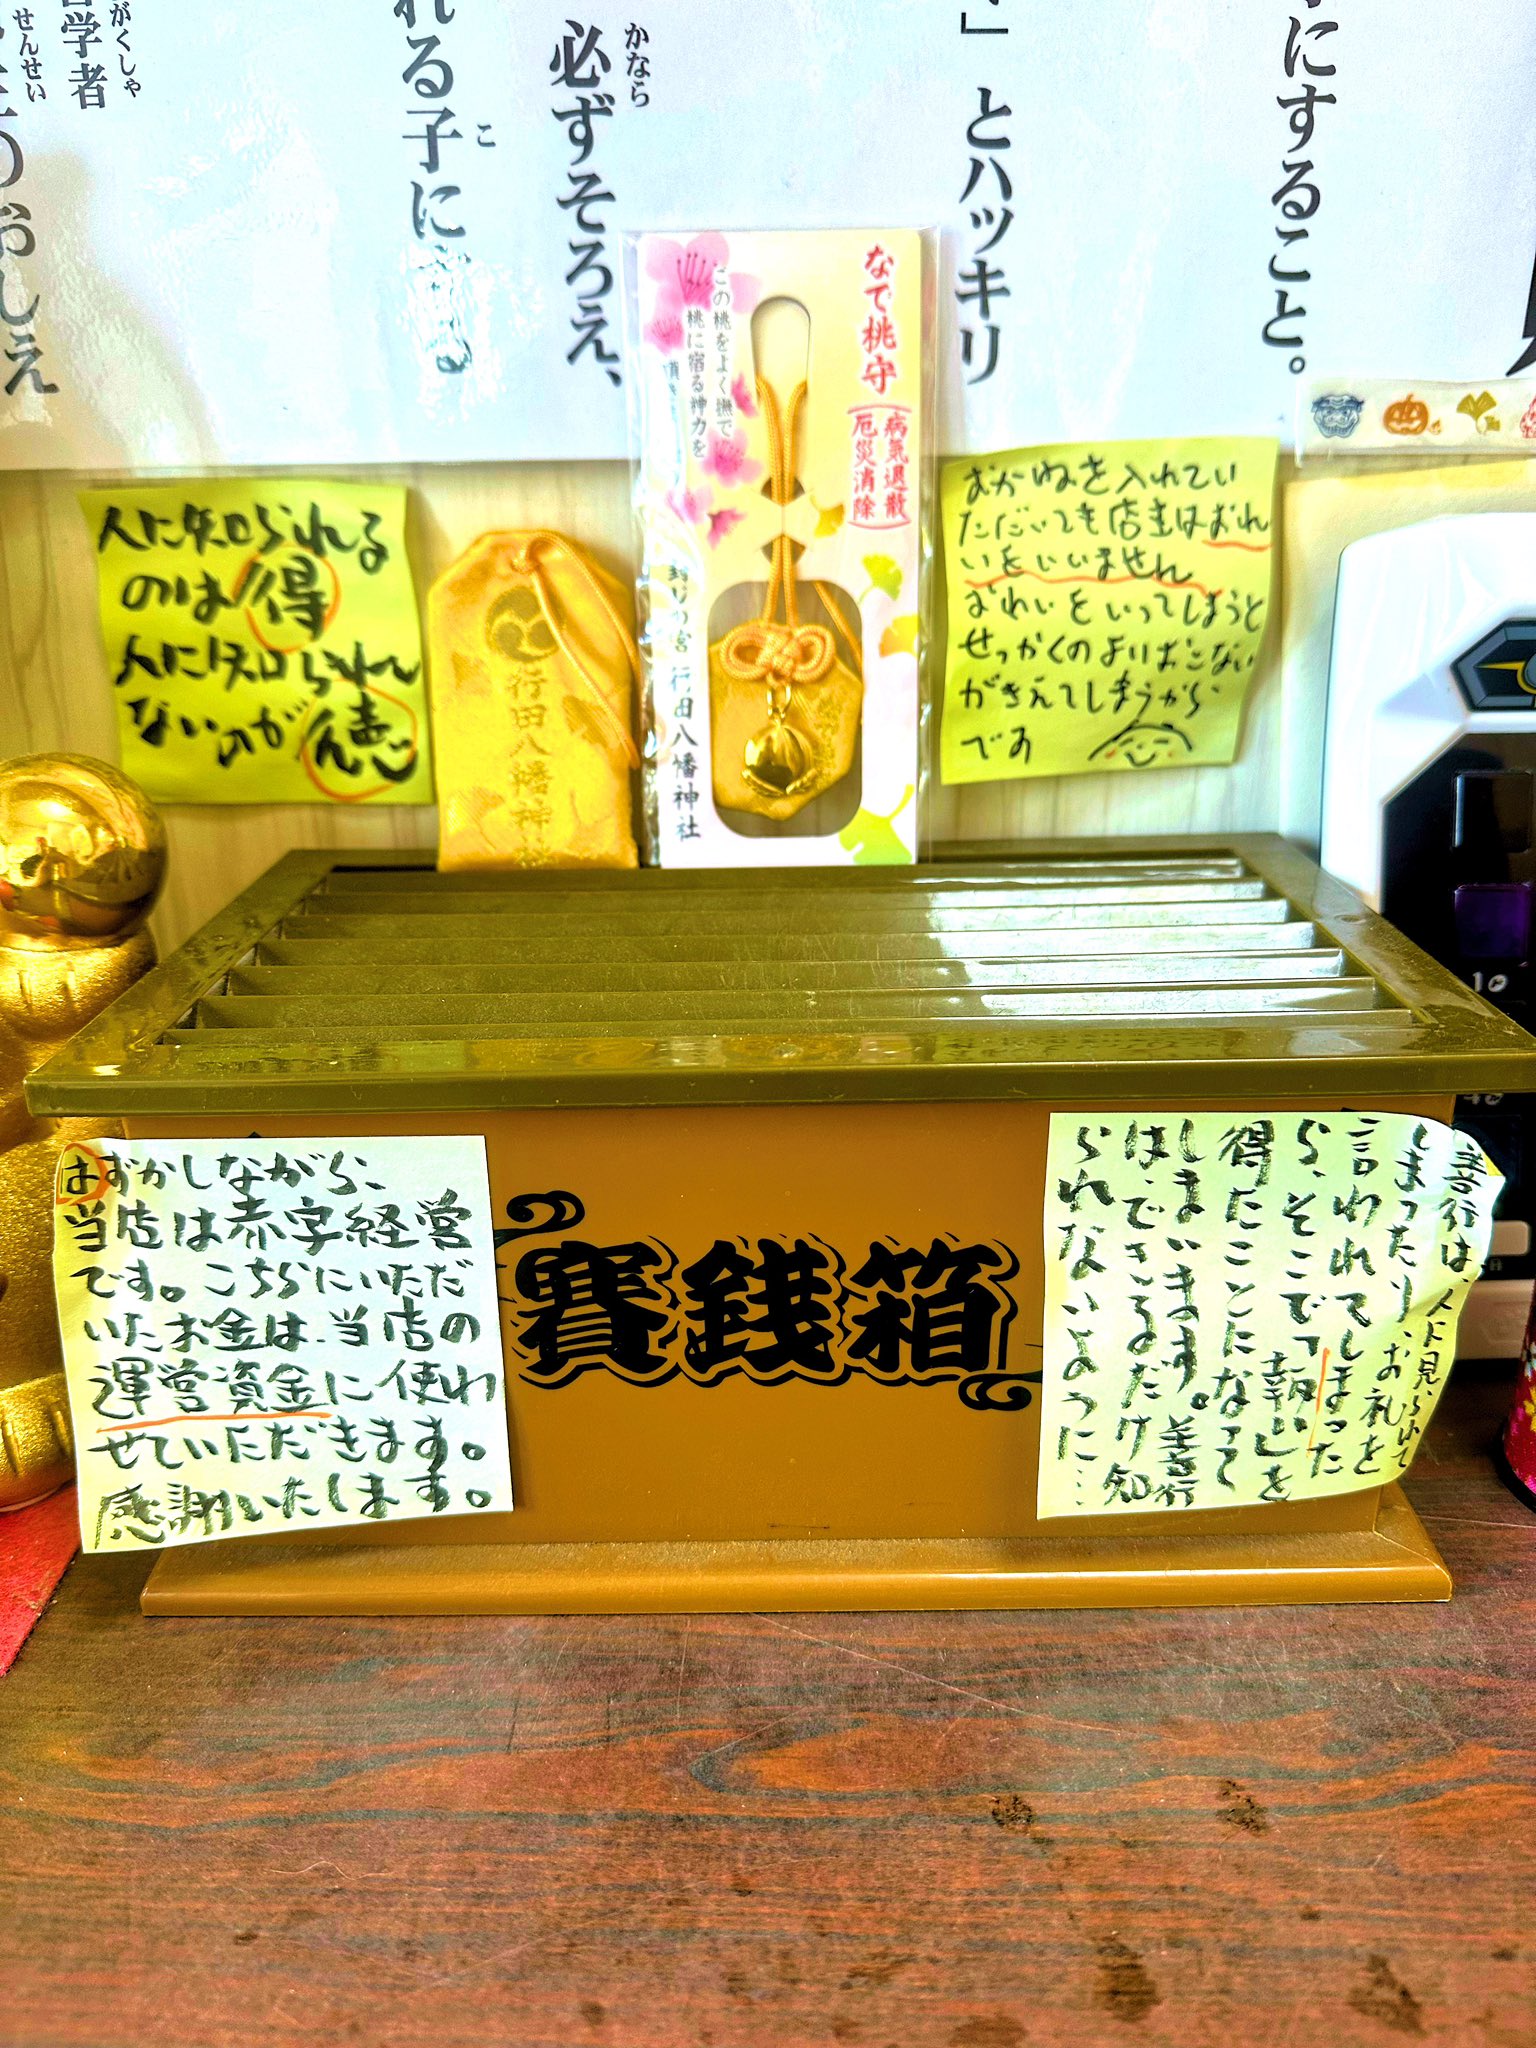 学者
がくしゃ
せんせい
のおしえ
れる子に。
こ
必ずそろえ、
かなら
」とハッキリ
にすること。
なで桃守
病気退散
厄災消除
この桃をよく撫で
桃に宿る神力を
封じの宮 行田八幡神社
行田八幡神社
人に知られる
のは得
人に知られ
ないのが徳
おかねを入れてい
ただいても店主はおれ
いをいいません
おれいをいってしまうと
せっかくのよいおこない
がきえてしまうから
です
賽銭箱
はずかしながら、
当店は赤字経営
です。こちらにいただ
いたお金は、当店の
運営資金に使わ
せていただきます。
感謝いたします。
善行は、人に見られて
しまったり、お礼を
言われてしまった
ら、そこで「報い」を
得たことになって
しまいます。善行
は、できるだけ知
られないように…
10